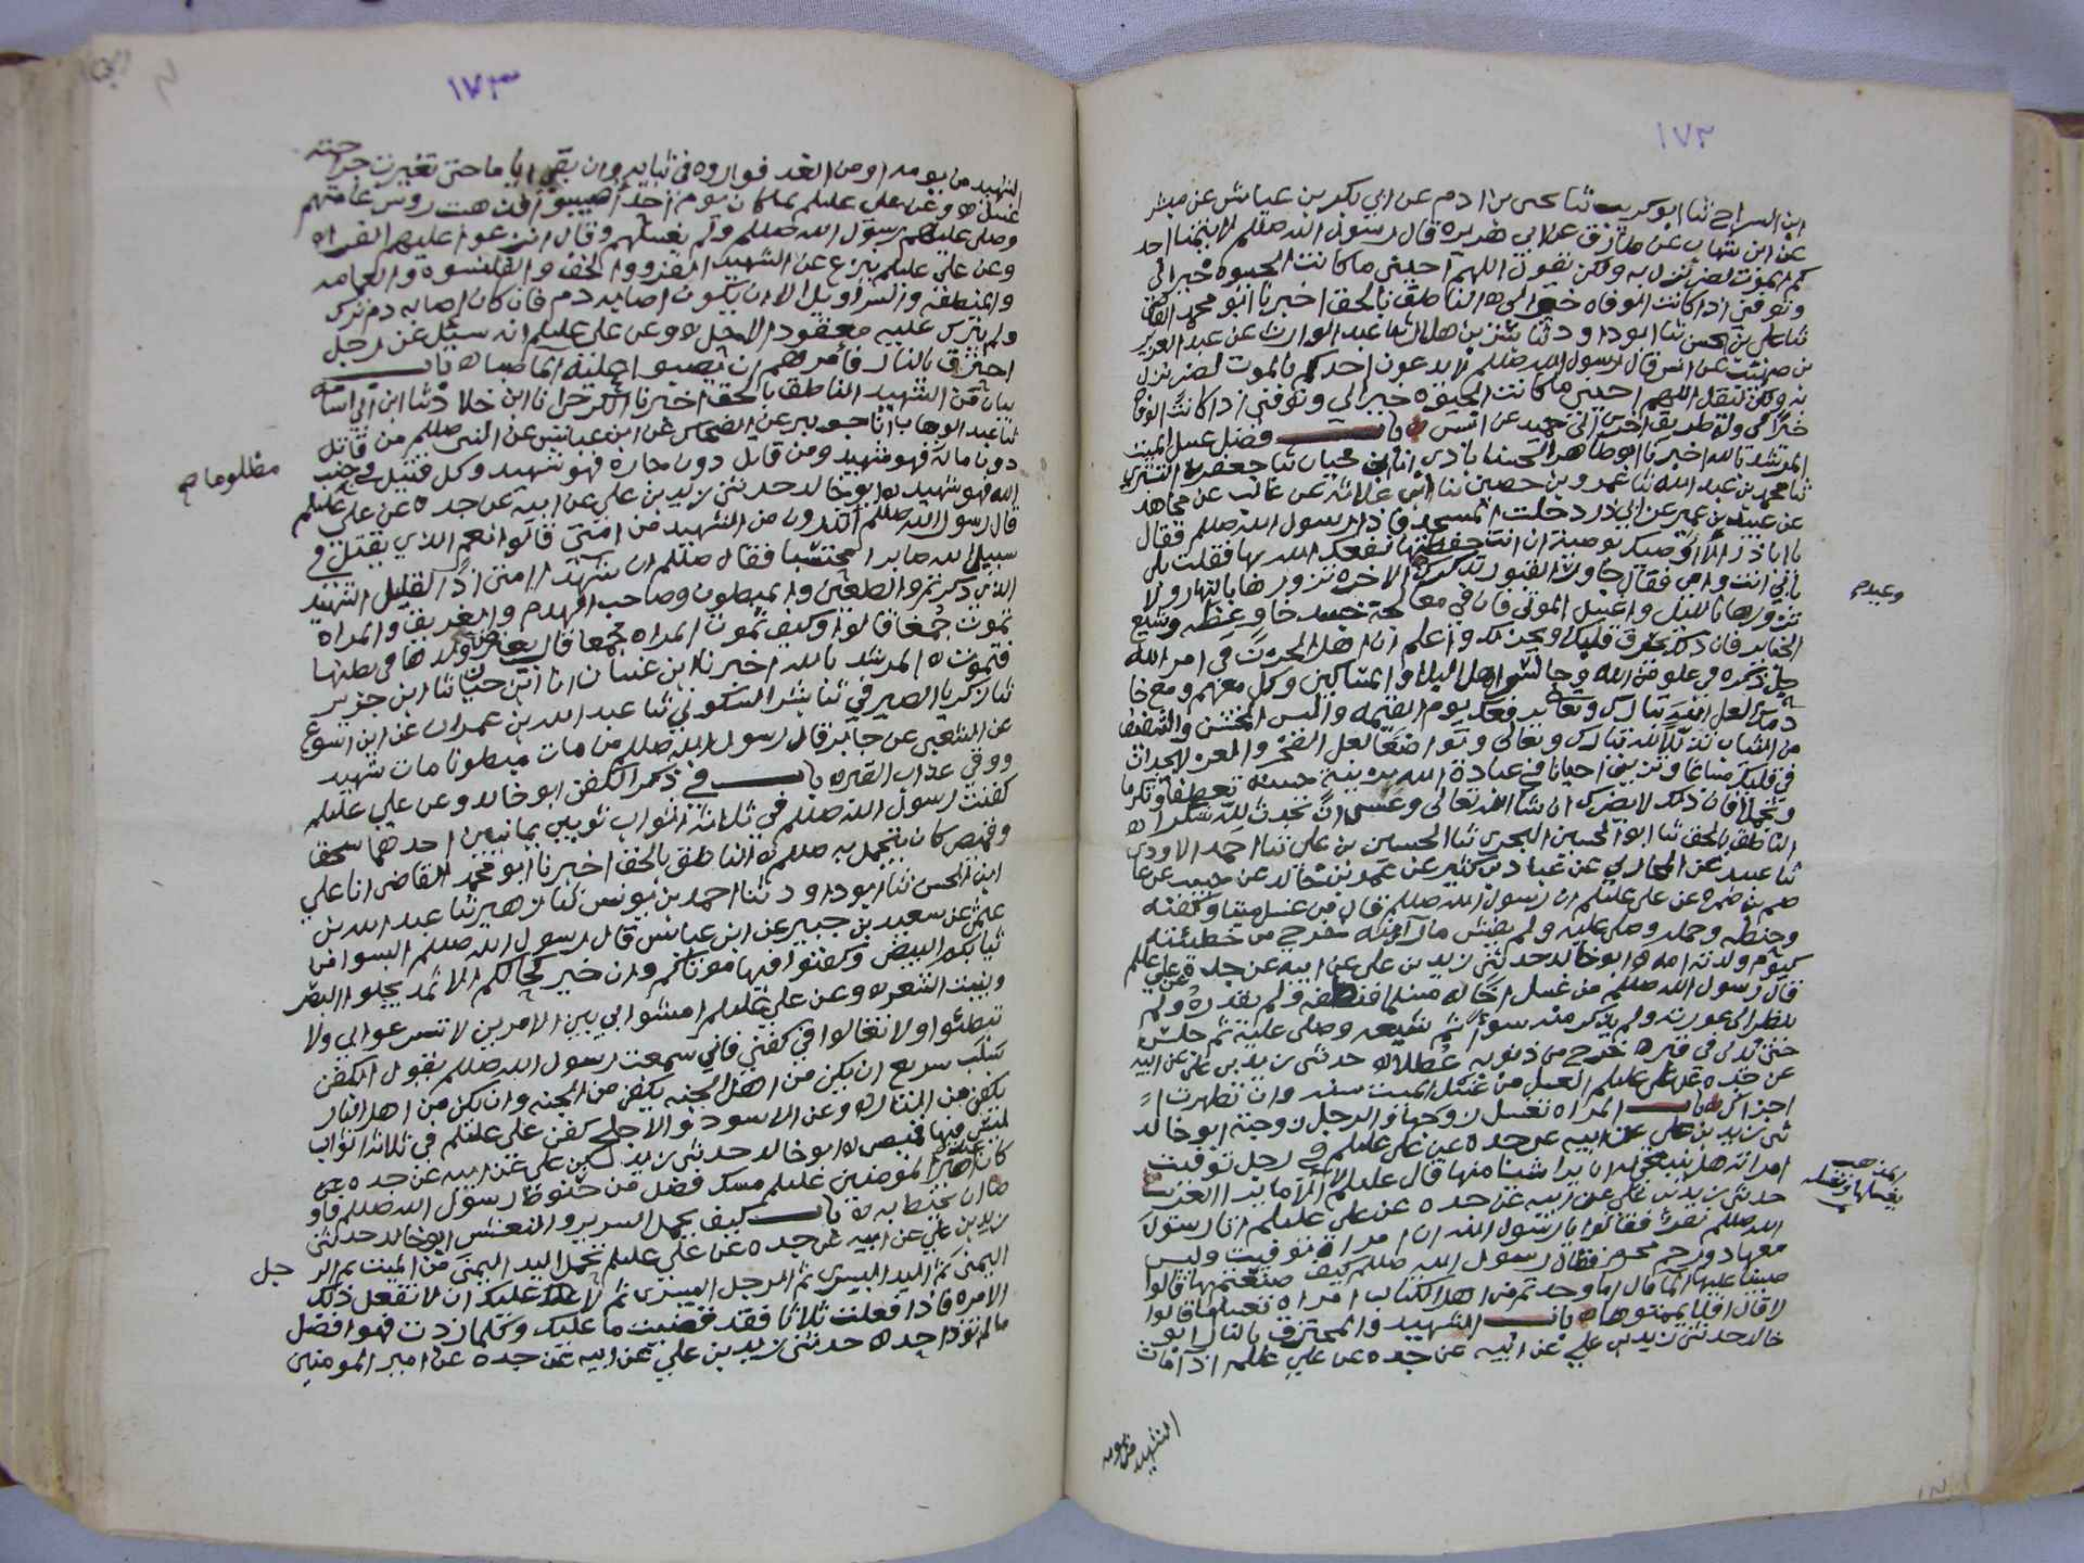 ١٧٢
ابن السراج ثنا ابو كريب ثنا يحيى بن ادم عن ابي بكر بن عياش عن مبشر
عن ابن شهاب عن طارق عن ابي هريرة قال رسول الله صللم لا يتمنا احد
كم الموت لضر نزل به ولكن يقول اللهم احييني ما كانت الحيوه خير الي
وتوفني اذا كانت الوفاه خير لي ه الناطق بالحق اخبرنا ابو محمد القاضي
ثنا علي بن الحسن ثنا ابو داود ثنا بشر بن هلال ثنا عبد الوارث عن عبد العزيز
بن صهيب عن انس قال رسول الله صللم لا يدعون احدكم بالموت لضر نزل
به ولكن ليقل اللهم احييني ما كانت الحيوه خير الي وتوفني اذا كانت الوفاه
خيرا لي وله طريق اخرى الى حميد عن انس ه باب فضل غسل الميت
المرشد بالله اخبرنا ابو طاهر الحسنابادي انا ابن حيان ثنا جعفر التستري
ثنا محمد بن عبد الله ثنا عمرو بن حصين ثنا ابن علاثة عن غالب عن مجاهد
عن عبيد بن عمير عن ابي ذر دخلت المسجد فاذا رسول الله صللم فقال
يا ابا ذر الا اوصيك بوصية ان انت حفظتها نفعك الله بها فقلت بلى
بابي انت وامي فقال جاور القبور تذكرك الاخره تزورها بالنهار ولا
تزورها بالليل واغسل الموتى فان في معالجة جسد خاو عظه وشيع
الجنايز فان ذلك يحرق قلبك ويحزنك واعلم ان اهل الحزن في امر الله
جل ذكره في علو من الله وجالس اهل البلا والمساكين وكل معهم ومع خا
دمك لعل الله تبارك وتعالى يرفعك يوم القيمه والبس الخشن والشفيف
من الثياب تذللا لله تبارك وتعالى وتواضعا لعل الفخر والعز لا يجدان
في قلبك مساغا وتزين احيانا في عبادة الله بزينة حسنة تعطفا وتكرما
وتجملا فان ذلك لا يضرك ان شا الله تعالى وعسى ان تحدث لله شكرا ه
الناطق بالحق ثنا ابو الحسين البحري ثنا الحسين بن علي ثنا احمد الاودي
ثنا عبيد عن المحاربي عن عباد بن كثير عن عمرو بن خالد عن حبيب عن عا
صم بن ضمره عن علي عليلم ان رسول الله صللم قال من غسل ميتا وكفنه
وحنطه وحمله وصلى عليه ولم يفش ما رآ منه خرج من خطيئته
كيوم ولدته امه ه ابو خالد حدثني زيد بن علي عن ابيه عن جده عن علي عليلم
قال رسول الله صللم من غسل اخا له مسلما فنظفه ولم يقذره ولم
ينظر الى عورته ولم يذكر منه سوا ثم شيعه وصلى عليه ثم جلس
حتى يدلى في قبره خرج من ذنوبه عطلا ه حدثني زيد بن علي عن ابيه
عن جده عن علي عليلم الغسل من غسل الميت سنه وان تطهرت
اجزاك ه باب المراه تغسل زوجها والرجل زوجته ابو خالد
ثني زيد بن علي عن ابيه عن جده عن علي عليلم في رجل توفيت
امراته هل ينبغي له ان يرا شيئا منها قال عليلم لا الا ما يرا الغريب
حدثني زيد بن علي عن ابيه عن جده عن علي عليلم اتا رسول
الله صللم نفر فقالوا يا رسول الله ان امراة توفيت وليس
معها ذو رحم محرم فقال رسول الله صللم كيف صنعتم بها قالوا
صببنا عليها الما قال اما وجدتم من اهل الكتاب امراه تغسلها قالوا
لا قال افلا يممتوها ه باب الشهيد والمحترق بالنار ابو
خالد حدثني زيد بن علي عن ابيه عن جده عن علي عليلم اذا مات
وعبدم
يغسلها وتغسله
الشهيد من يومه
١٧٣
الشهيد من يومه او من الغد فواروه في ثيابه وان بقي اياما حتى تغيرت جراحته
غسل ه وعن علي عليلم لما كان يوم احد اصيبوا فذهبت روس عامتهم
وصلى عليهم رسول الله صللم ولم يغسلهم وقال انزعوا عليهم الفراه
وعن علي عليلم ينزع عن الشهيد الفرو والخف والقلنسوه والعمامه
والمنطقه والسراويل الا ان يكون اصابه دم فان كان اصابه دم ترك
ولم يترك عليه معقود الا حل ه وعن علي عليلم انه سئل عن رجل
احترق بالنار فأمرهم ان يصبوا عليه الما صبا ه باب
بيان من الشهيد الناطق بالحق اخبرنا ابن خلاد ثنا ابن ابي اسامه
ثنا عبد الوهاب انا جويبر عن الضحاك عن ابن عباس عن النبي صللم من قاتل
دون ماله فهو شهيد ومن قاتل دون جاره فهو شهيد وكل قتيل في جنب
الله فهو شهيد ه ابو خالد حدثني زيد بن علي عن ابيه عن جده عن علي عليلم
قال رسول الله صللم اتدرون من الشهيد من امتي قالوا نعم الذي يقتل في
سبيل الله صابرا محتسبا فقال صللم ان شهدا امتي اذا لقليل الشهيد
الذي ذكرتم والطعين والمبطون وصاحب الهدم والغريق والمراه
تموت جمعا قالوا وكيف تموت المراه جمعا قال يعترض ولدها في بطنها
فتموت ه المرشد بالله اخبرنا ابن غسان انا ابن حيان ثنا ابن جرير
ثنا زكريا الصيرفي ثنا بشر السكوني ثنا عبد الله بن عمران عن ابن اشوع
عن الشعبي عن جابر قال رسول الله صللم من مات مبطونا مات شهيد
ووقي عذاب القبر ه باب في ذكر الكفن ابو خالد وعن علي عليلم
كفنت رسول الله صللم في ثلاثة اثواب ثوبين يمانيين احدهما سحق
وقميص كان يتجمل به صللم ه الناطق بالحق اخبرنا ابو محمد القاضي انا علي
ابن الحسن ثنا ابو داود ثنا احمد بن يونس ثنا زهير ثنا عبد الله بن
عثمن عن سعيد بن جبير عن ابن عباس قال رسول الله صللم البسوا من
ثيابكم البيض وكفنوا فيها موتاكم وان خير كحالكم الاثمد يجلوا البصر
وينبت الشعر ه وعن علي عليلم امشوا بي بين الامرين لا تسرعوا بي ولا
تبطئوا ولا تغالوا في كفني فاني سمعت رسول الله صللم يقول الكفن
سلب سريع ان يكن من اهل الجنه يكفن من الجنه وان يكن من اهل النار
يكفن من النار ه وعن الاسود الاجلح كفن علي عليلم في ثلاثه اثواب
ليس فيها قميص ه ابو خالد حدثني زيد بن علي عن ابيه عن جده عن
كان عند امير المومنين عليلم مسك فضل من حنوط رسول الله صللم فاو
صا ان يحنط به ه باب كيف يحمل السرير والنعش ابو خالد حدثني
زيد بن علي عن ابيه عن جده عن علي عليلم تحمل اليد اليمنى من الميت ثم الر
اليمنى ثم اليد اليسرى ثم الرجل اليسرى ثم لا عليك ان لا تفعل ذلك
الا مره فاذا فعلت ثلاثا فقد قضيت ما عليك وكلما زدت فهو افضل
ما لم تؤذ احد ه حدثني زيد بن علي عن ابيه عن جده عن امير المومنين
مظلوما صح
جل